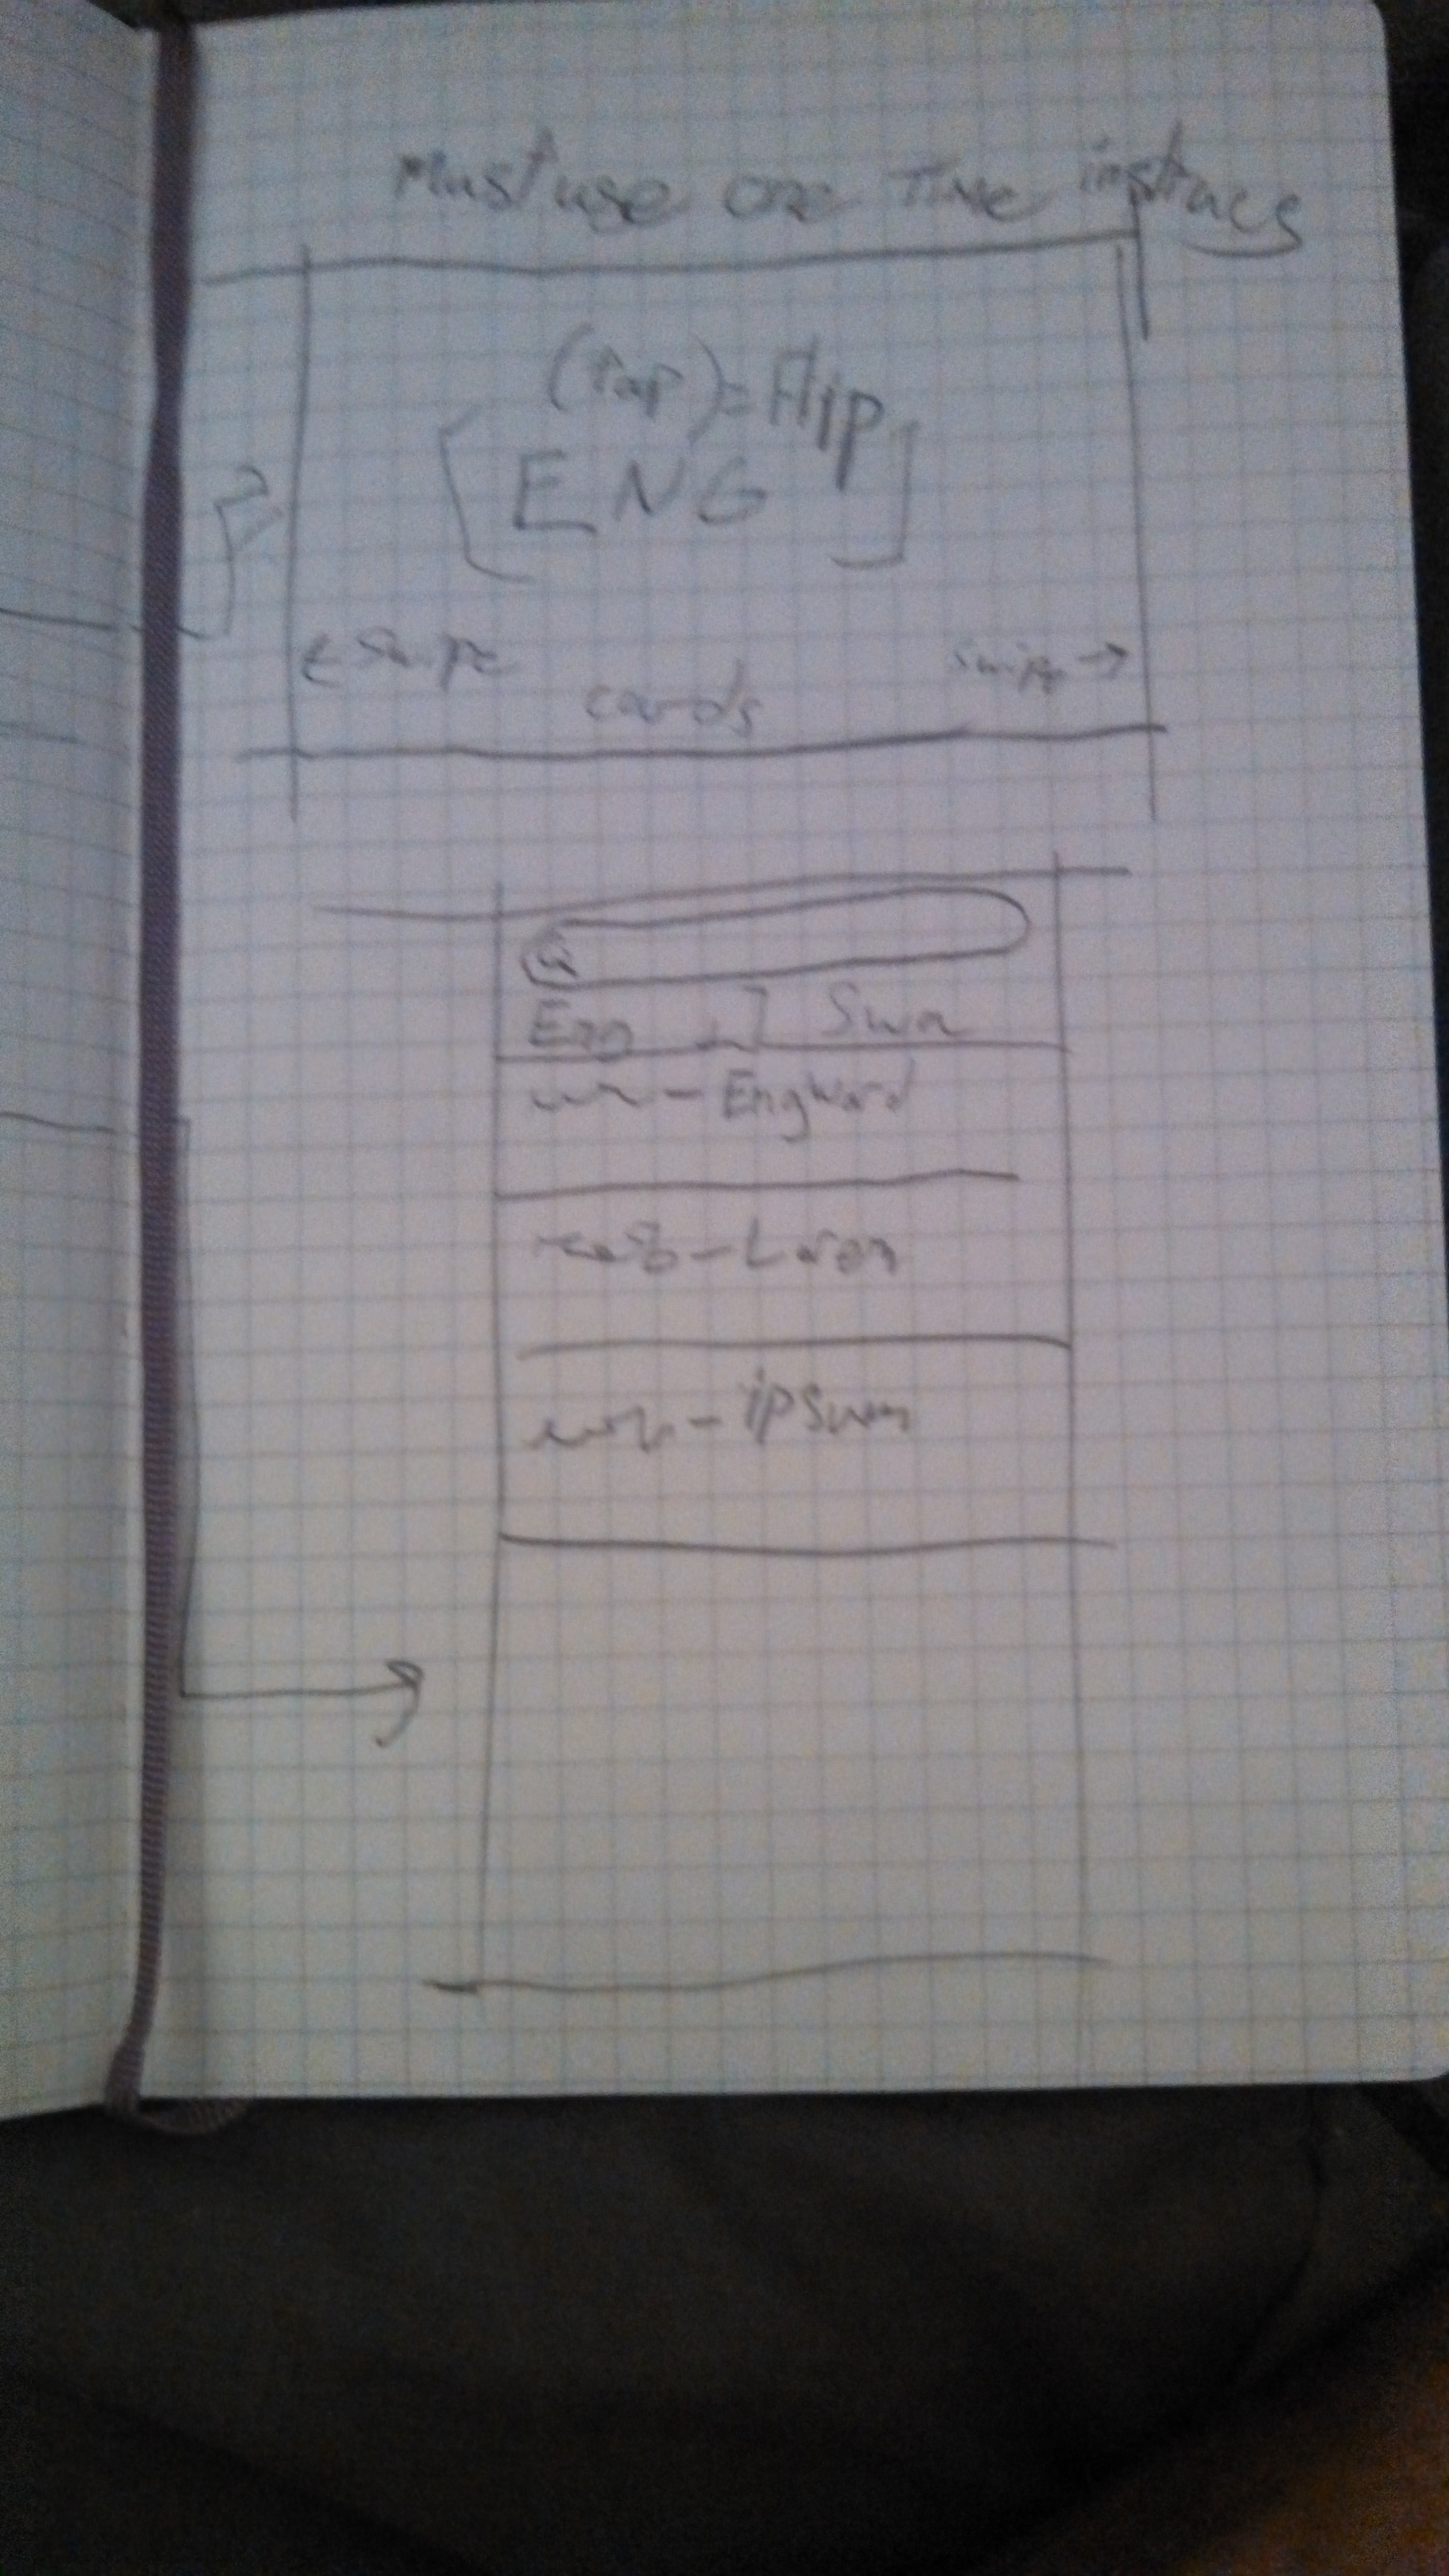 Must use one Time instrucs
(Tap) = Flip
[ENG]
← Swipe
swipe →
cards
Eng
Swa
- Eng word
- Lorem
- ipsum